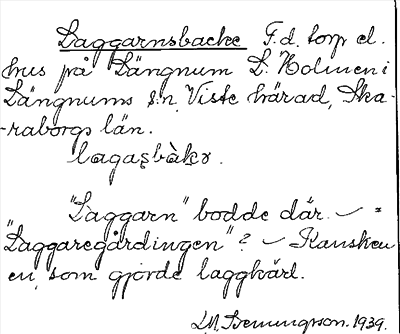 Laggarnsbacke F.d. torp el.
hus på Längnum L. Holmen i
Längnums s:n, Viste härad, Ska-
-raborgs län.
lagaṣbàkə.
"Laggarn" bodde där. — =
"Laggaregårdingen"? — Kanske
en, som gjorde laggkärl.
1939.